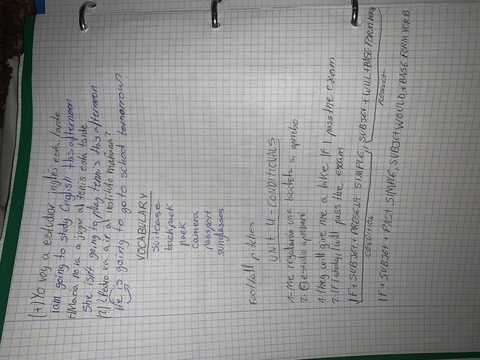 (+) Yo voy a estudiar ingles esta tarde
I am going to study English this afternoon
+) Maria no va a jugar al tenis esta tarde
She isn't going to play tennis this afternoon
[?] ¿Pedro va a ir al instituto mañana?
He is going to go to school tomorrow?
VOCABULARY
suitcase
backpack
pack
camera
passport
sunglasses
Football pitches
UNIT 4 - CONDITIONALS
1. Me regalarán una bicicleta si apruebo
2. Si estudio aprobaré
1. They will give me a bike If I pass the exam
2. If I study, I will pass the exam
IF + SUBJET + PRESENT SIMPLE, SUBJET + WILL + BASE FORM
CONDITION RESULT
IF + SUBJET + PAST SIMPLE, SUBJET WOULD + BASE FORM VERB